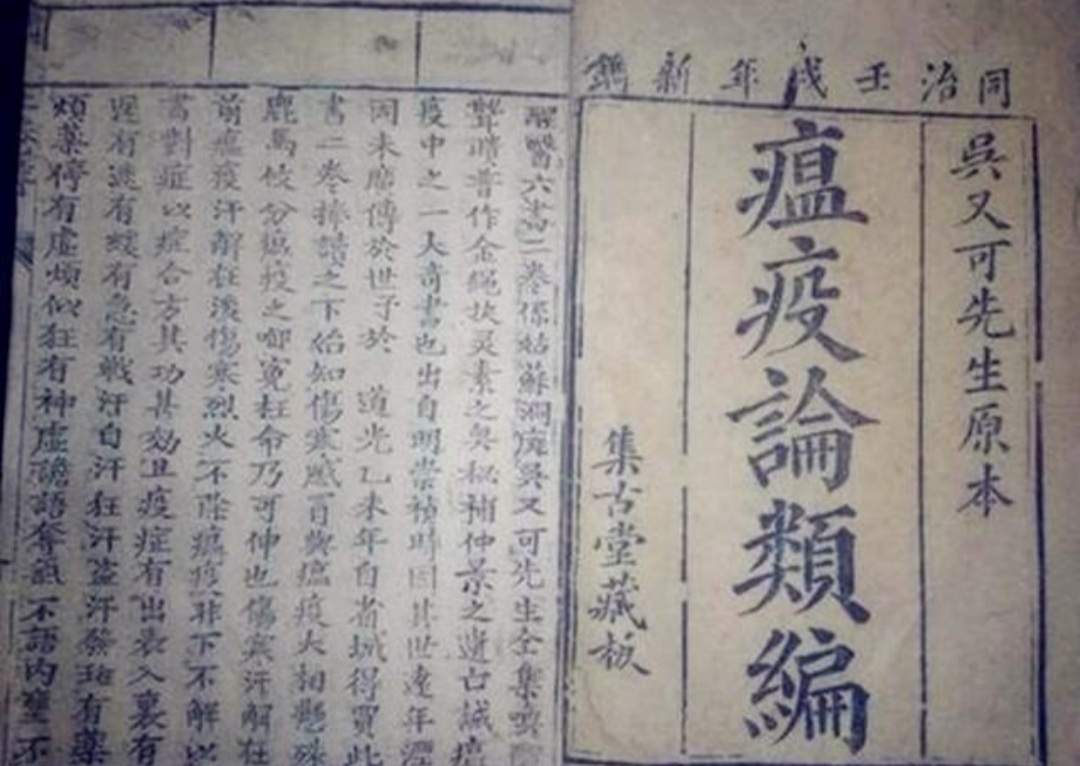 同治壬戌年新鐫
吳又可先生原本
瘟疫論類編
集古堂藏板
醒醫六書二卷係姑蘇洞庭吳又可先生全集喚醒
聾聵普作金繩扶灵素之奥秘補仲景之遺古誠瘟
疫中之一大奇書也出自明崇禎時因其世遠年湮
同未廣傳於世予於 道光乙未年自省城得買此
書二卷捧讀之下始知傷寒感冒與瘟疫大相懸殊
鹿馬攸分瘟疫之啣寃枉命乃可伸也傷寒汗解在
前瘟疫汗解在後傷寒烈火不除瘟疫非下不解以
書對症以症合方其功甚効且疫症有出表入裏有
遲有速有緩有急有戰汗自汗狂汗盜汗發斑有藥
煩藥停有虛煩似狂有神虛譫語奪氣不語內壅不